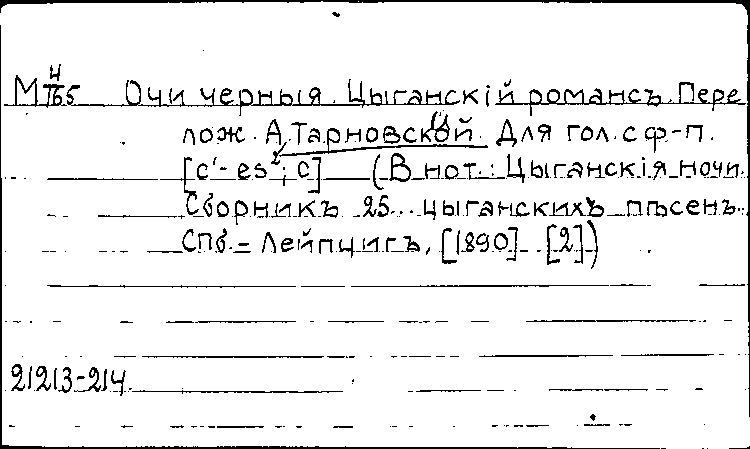 М 4/165 Очи черныя. Цыганскій романсъ. Пере
лож. А. Тарновской. Для гол. с ф-п.
[c'- es²; c] (В нот.: Цыганскія ночи.
Сборникъ 25... цыганскихъ пѣсенъ..
Спб. - Лейпцигъ, [1890] [2])
21213-214